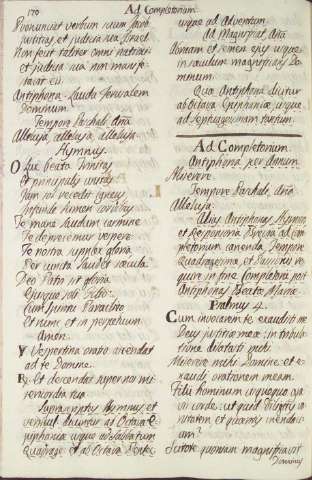 170
Ad Completorium.
Annunciat verbum suum Jacob
justitias, et judicia sua Israel
Non fecit taliter omni nationi
et judicia sua non manife-
stavit eis.
Antiphona. Lauda Jerusalem
Dominum.
Tempore Paschali, Ana
Alleluja, alleluja, alleluja.
Hymnus.
O Lux beata Trinitas
Et principalis unitas
Jam sol recedit igneus
Infunde lumen cordibus
Te mane laudum carmine
Te deprecemur vespere
Te nostra supplex gloria
Per cuncta laudet saecula.
Deo Patri sit gloria
Ejusque soli Filio
Cum Spiritu Paraclito
Et nunc et in perpetuum.
Amen.
V. Vespertina oratio ascendat
ad te Domine.
R. Et descendat super nos mi-
sericordia tua.
Suprascriptus Hymnus, et
versus, dicuntur ab Octava E-
piphaniae usque ad Sabbatum
Quadrage. et ab Octava Pente-
usque ad Adventum.
Ad Magnificat, Ana
Abraham et semini ejus usque
in saeculum magnificat
Dominum.
Quae Antiphona dicitur
ab Octava Epiphaniae, usque
ad Septuagesimam tantum.
Ad Completorium
Antiphona per Annum.
Miserere.
Tempore Paschali, Ana
Alleluja.
Alias Antiphonas, Hymnos,
et Responsoria Brevia ad Com-
pletorium canenda, Tempore
Quadragesimae, et Passionis
in fine Completorii post
Antiphonas Beatae Mariae.
Psalmus 4.
Cum invocarem te exaudivit me
Deus justitiae meae: in tribula-
tione dilatasti mihi
Miserere mihi Domine: et e-
xaudi, orationem meam.
Filii hominum usquequo gra-
vi corde: ut quid diligitis va-
nitatem, et quaeritis menda-
cium?
Scitote quoniam magnificavit
Dominus